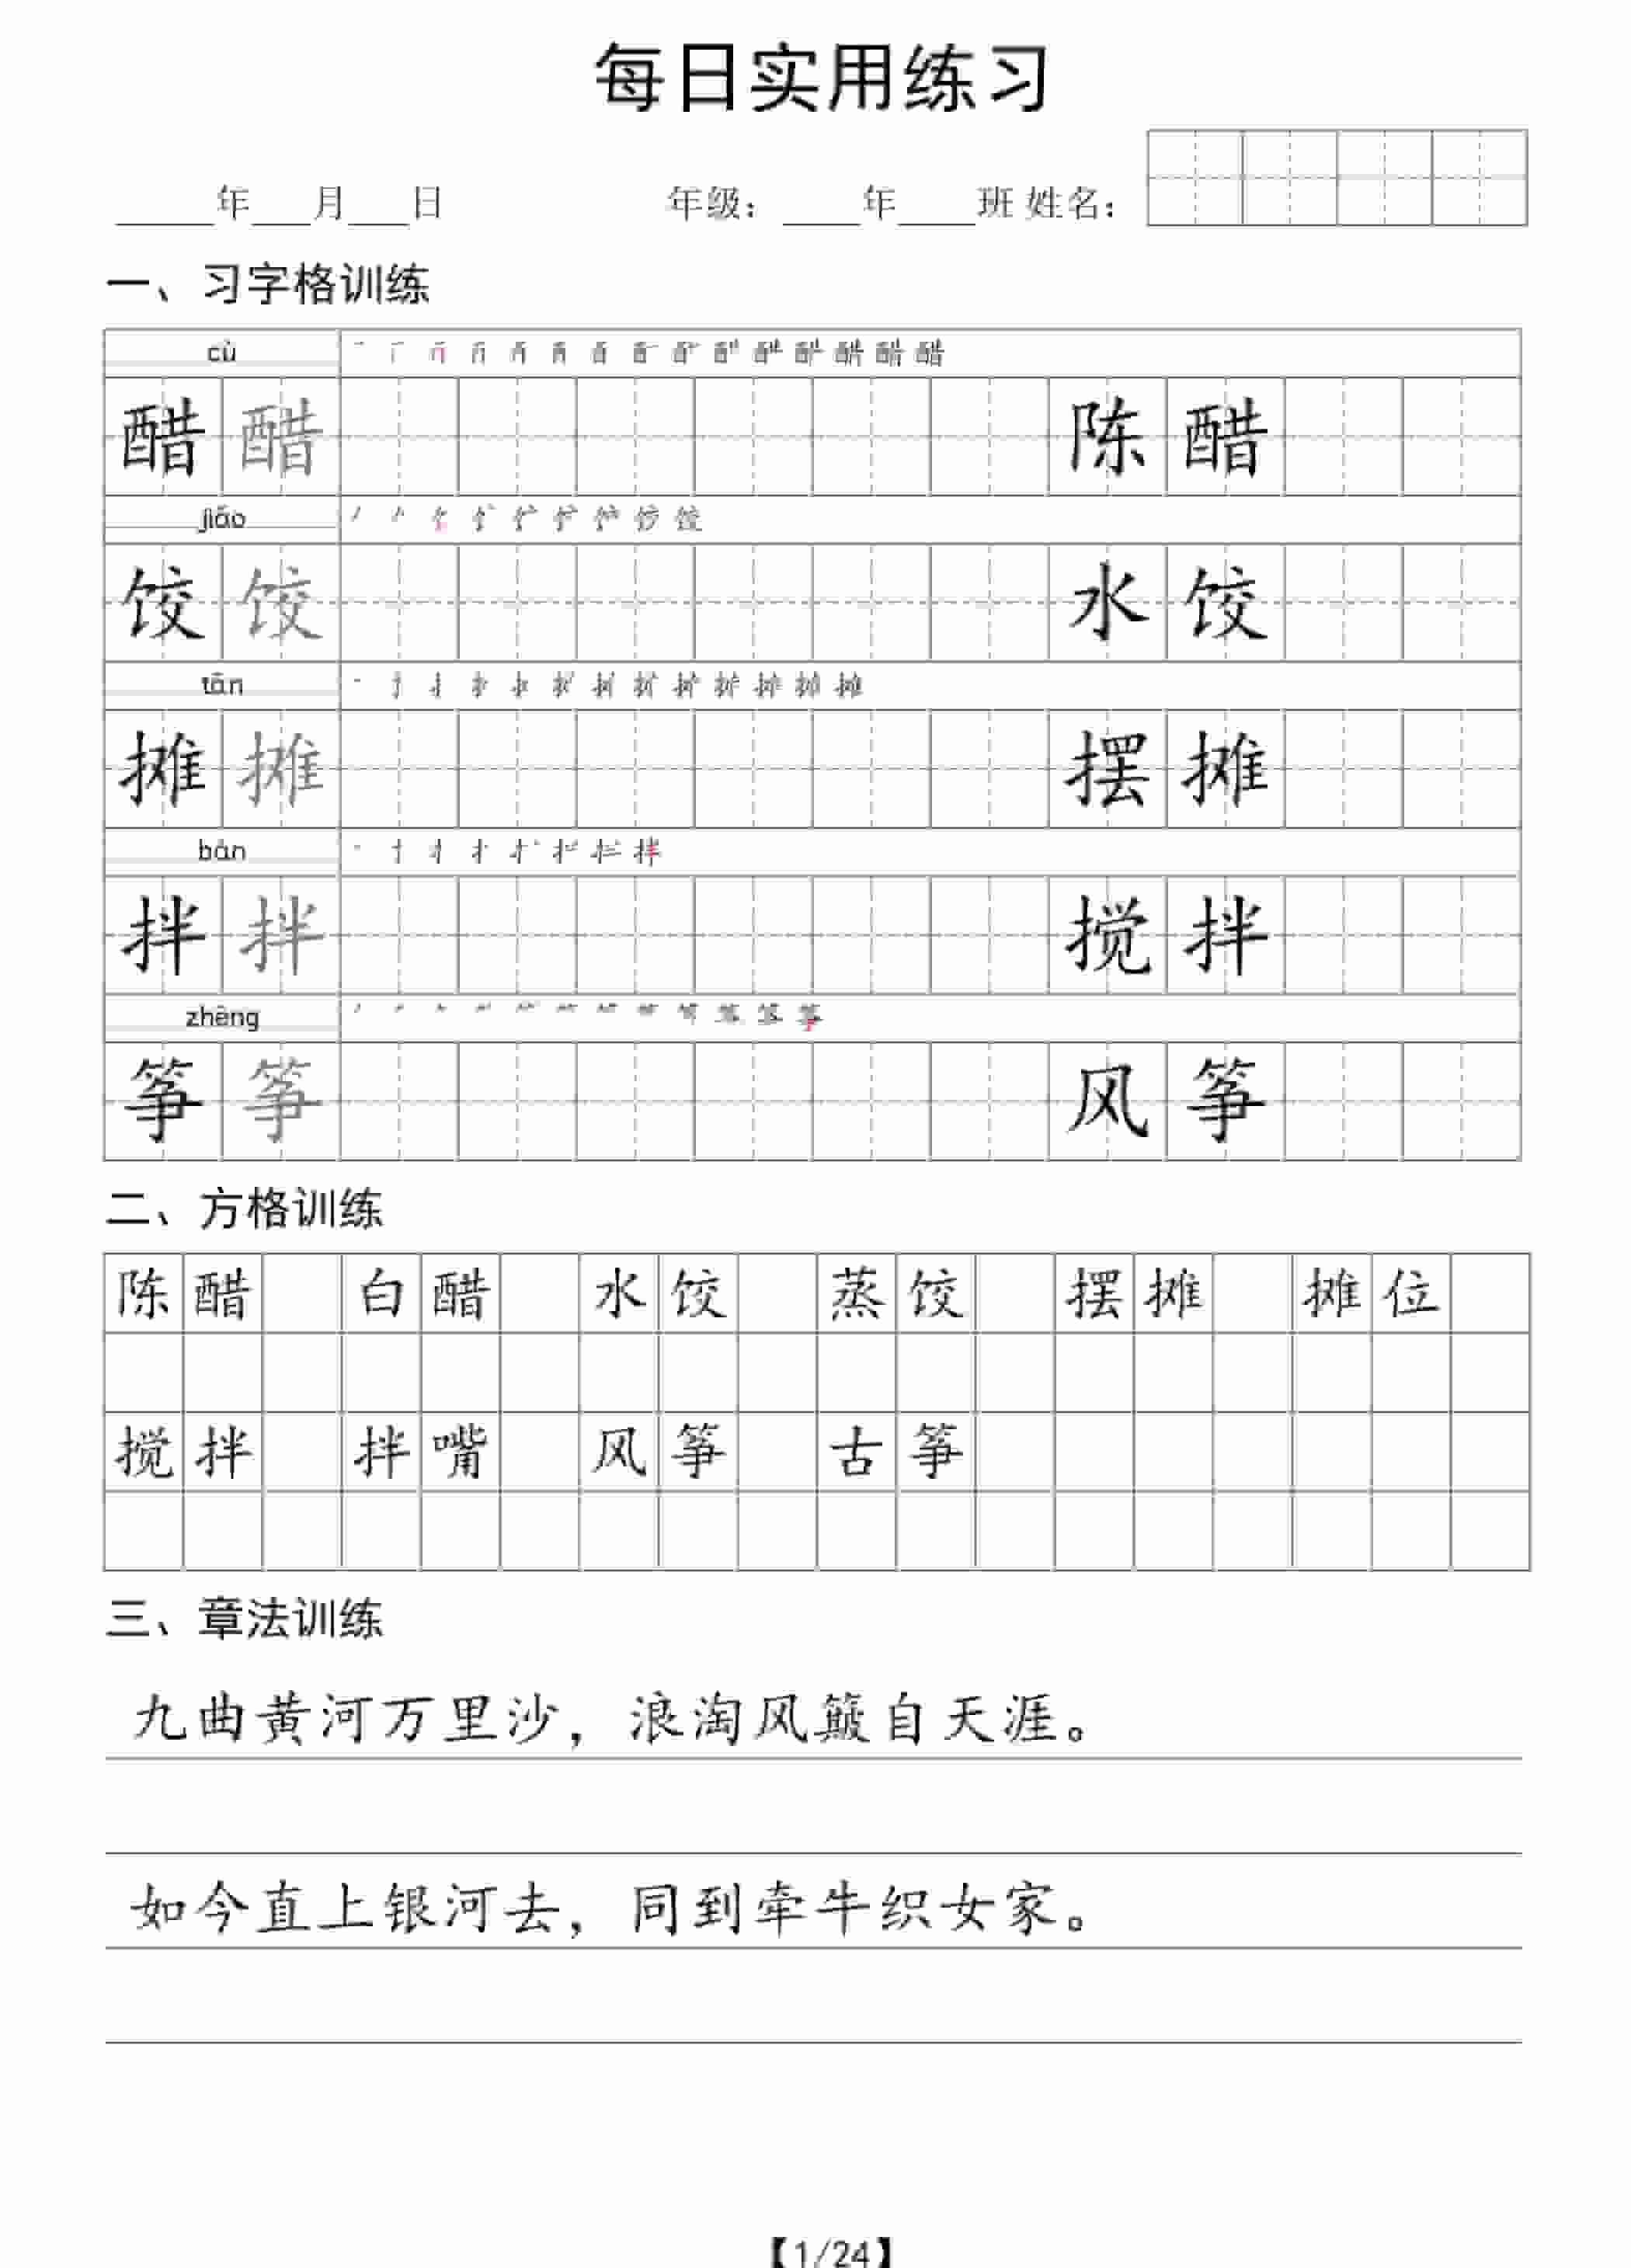 每日实用练习
____年___月___日 年级：____年____班 姓名：
一、习字格训练
cù
醋 醋 陈 醋
jiǎo
饺 饺 水 饺
tān
摊 摊 摆 摊
bàn
拌 拌 搅 拌
zhēng
筝 筝 风 筝
二、方格训练
陈醋 白醋 水饺 蒸饺 摆摊 摊位
搅拌 拌嘴 风筝 古筝
三、章法训练
九曲黄河万里沙，浪淘风簸自天涯。
如今直上银河去，同到牵牛织女家。
【1/24】